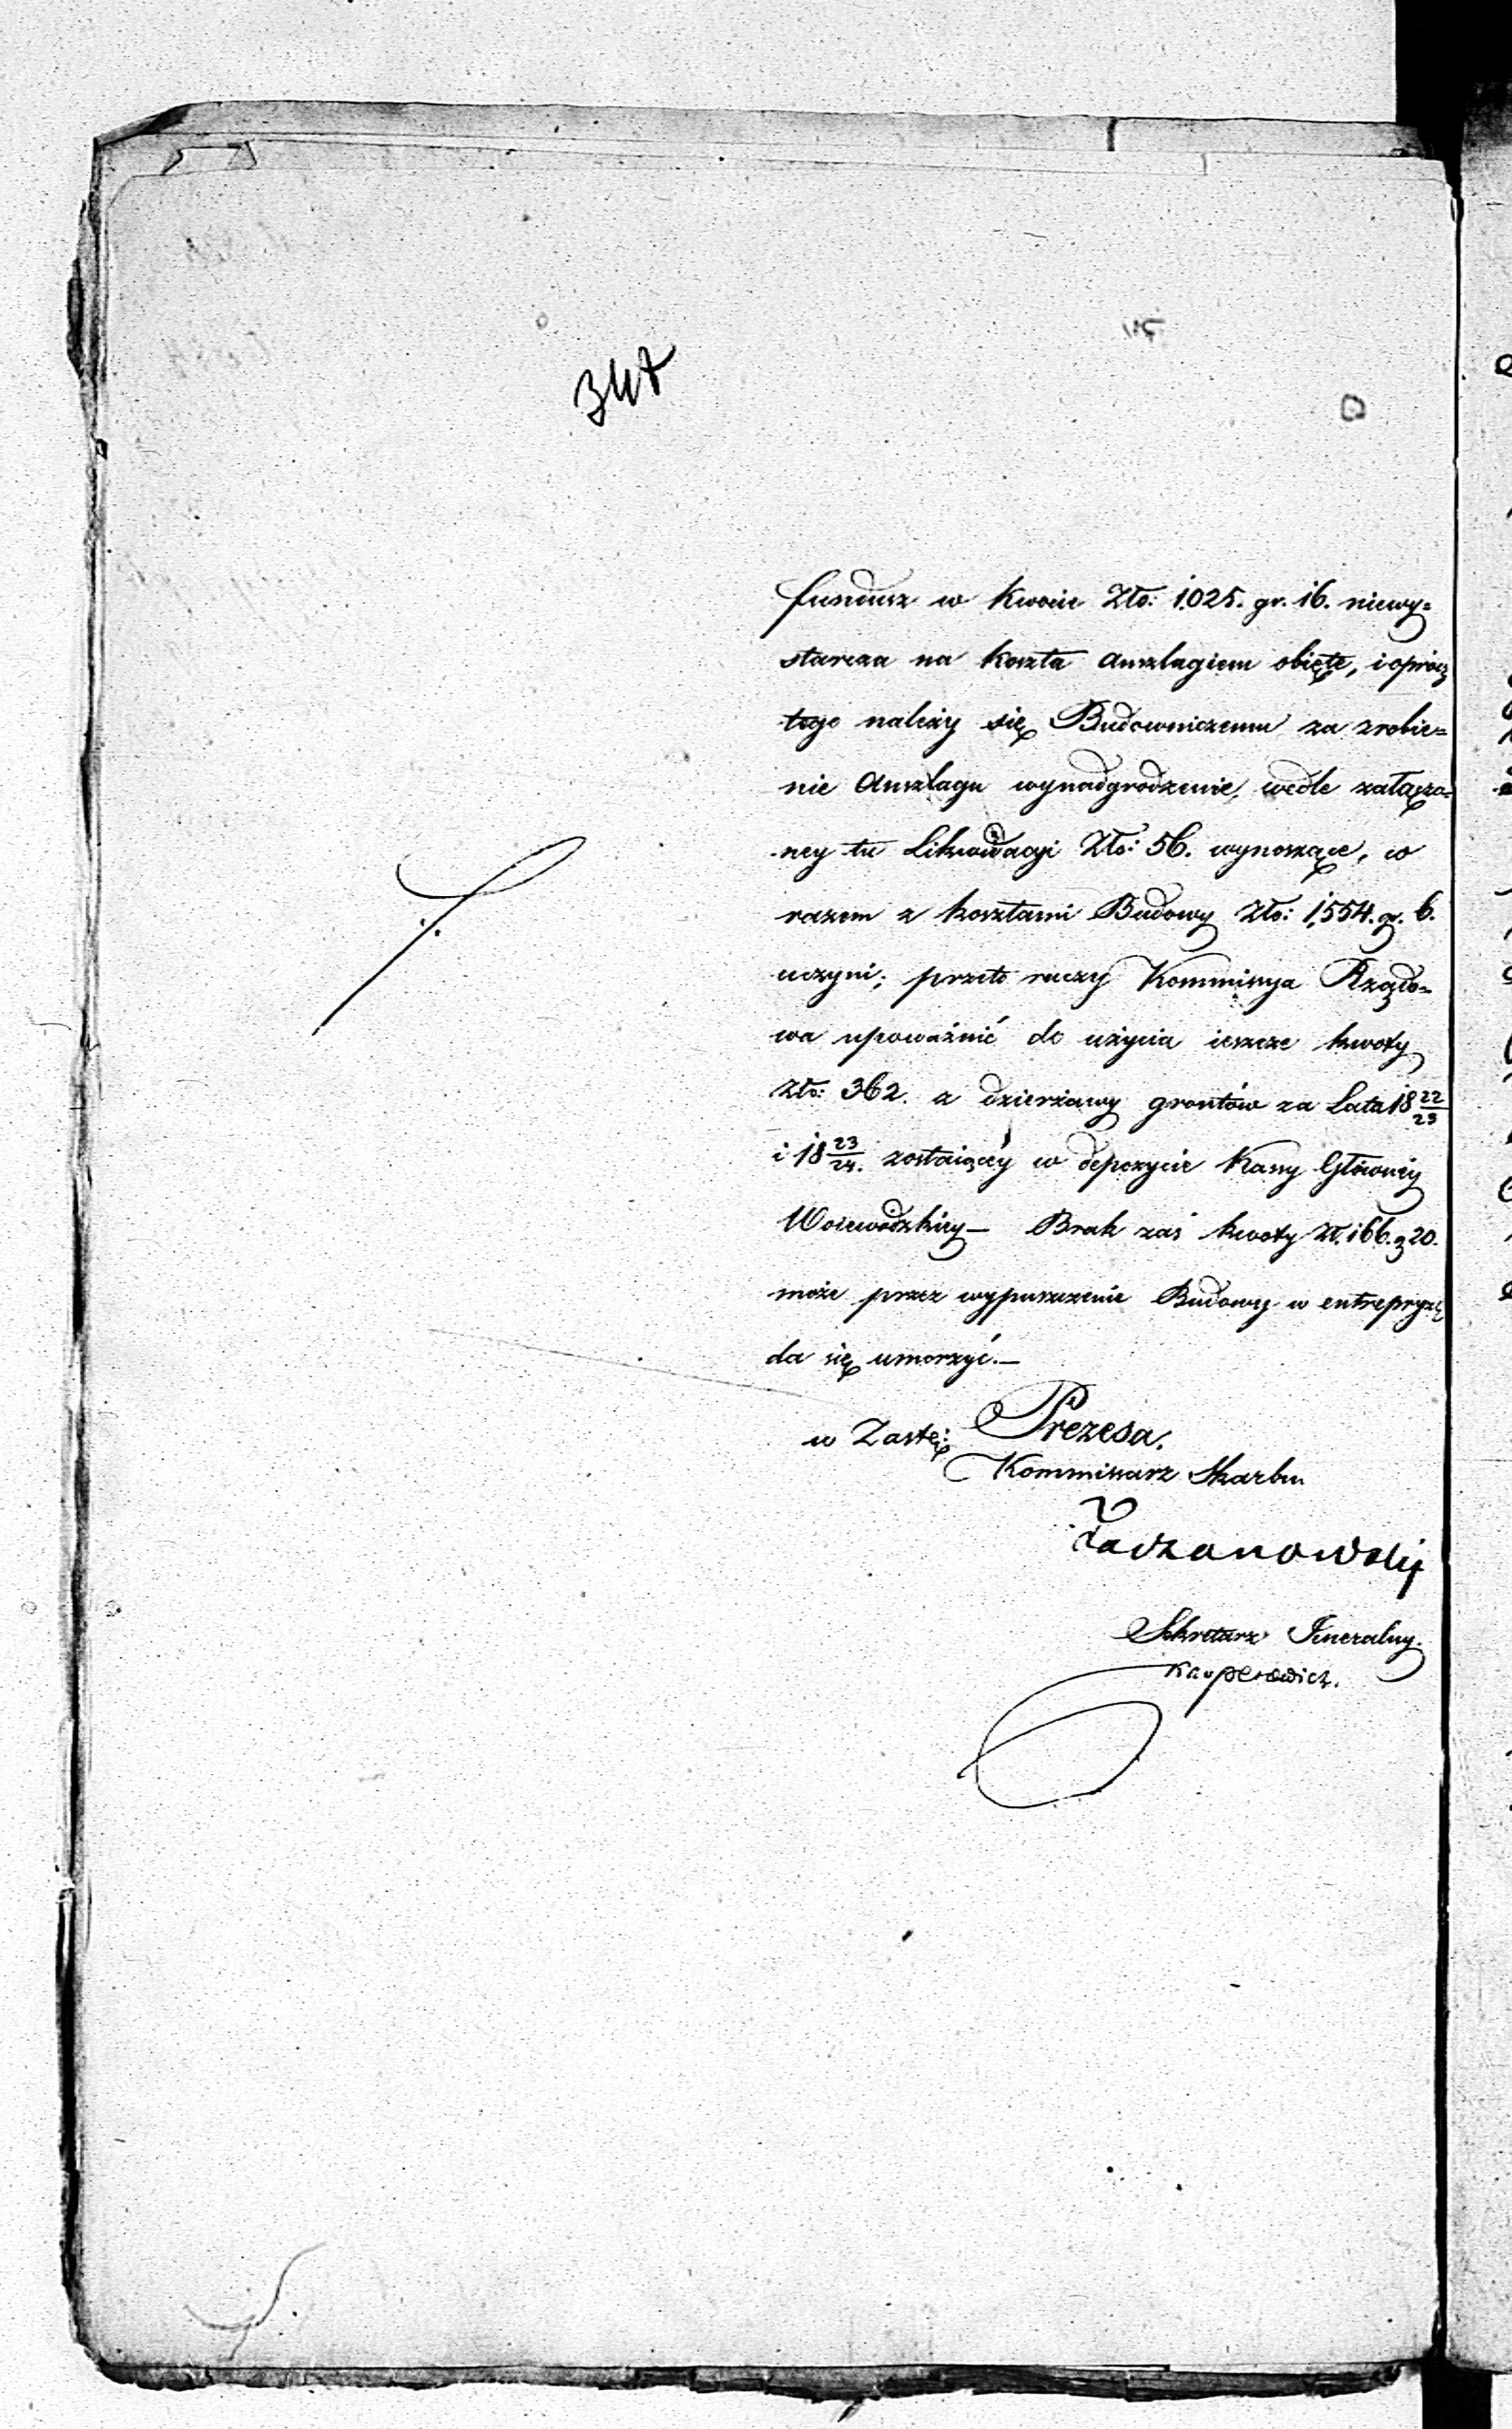 347
fundusz w kwocie Zło: 1025. gr. 16. niewy=
starcza na koszta Anszlagiem obięte, i oprócz
tego należy się Budowniczemu za zrobie=
nie Anszlagu wynadgrodzenie, wedle załączo=
ney tu Likwidacyi Zło: 56. wynoszące, w
razem z kosztami Budowy Zło: 1,554. gr. 6.
uczyni; przeto raczy Kommissya Rządo=
wa upoważnić do użycia ieszcze kwoty
Zło: 362. z dzierżawy grontów za Lata 18 22/23
i 18 23/24. zostaiącéy w depozycie Kassy Głównéy
Woiewódzkiey — Brak zaś kwoty Zł. 166. g 20.
może przez wypuszczenie Budowy w entrepryzę
da się umorzyć. —
w Zastę: Prezesa.
Kommissarz Skarbu
Sekretarz Jeneralny.
Kasperowicz.